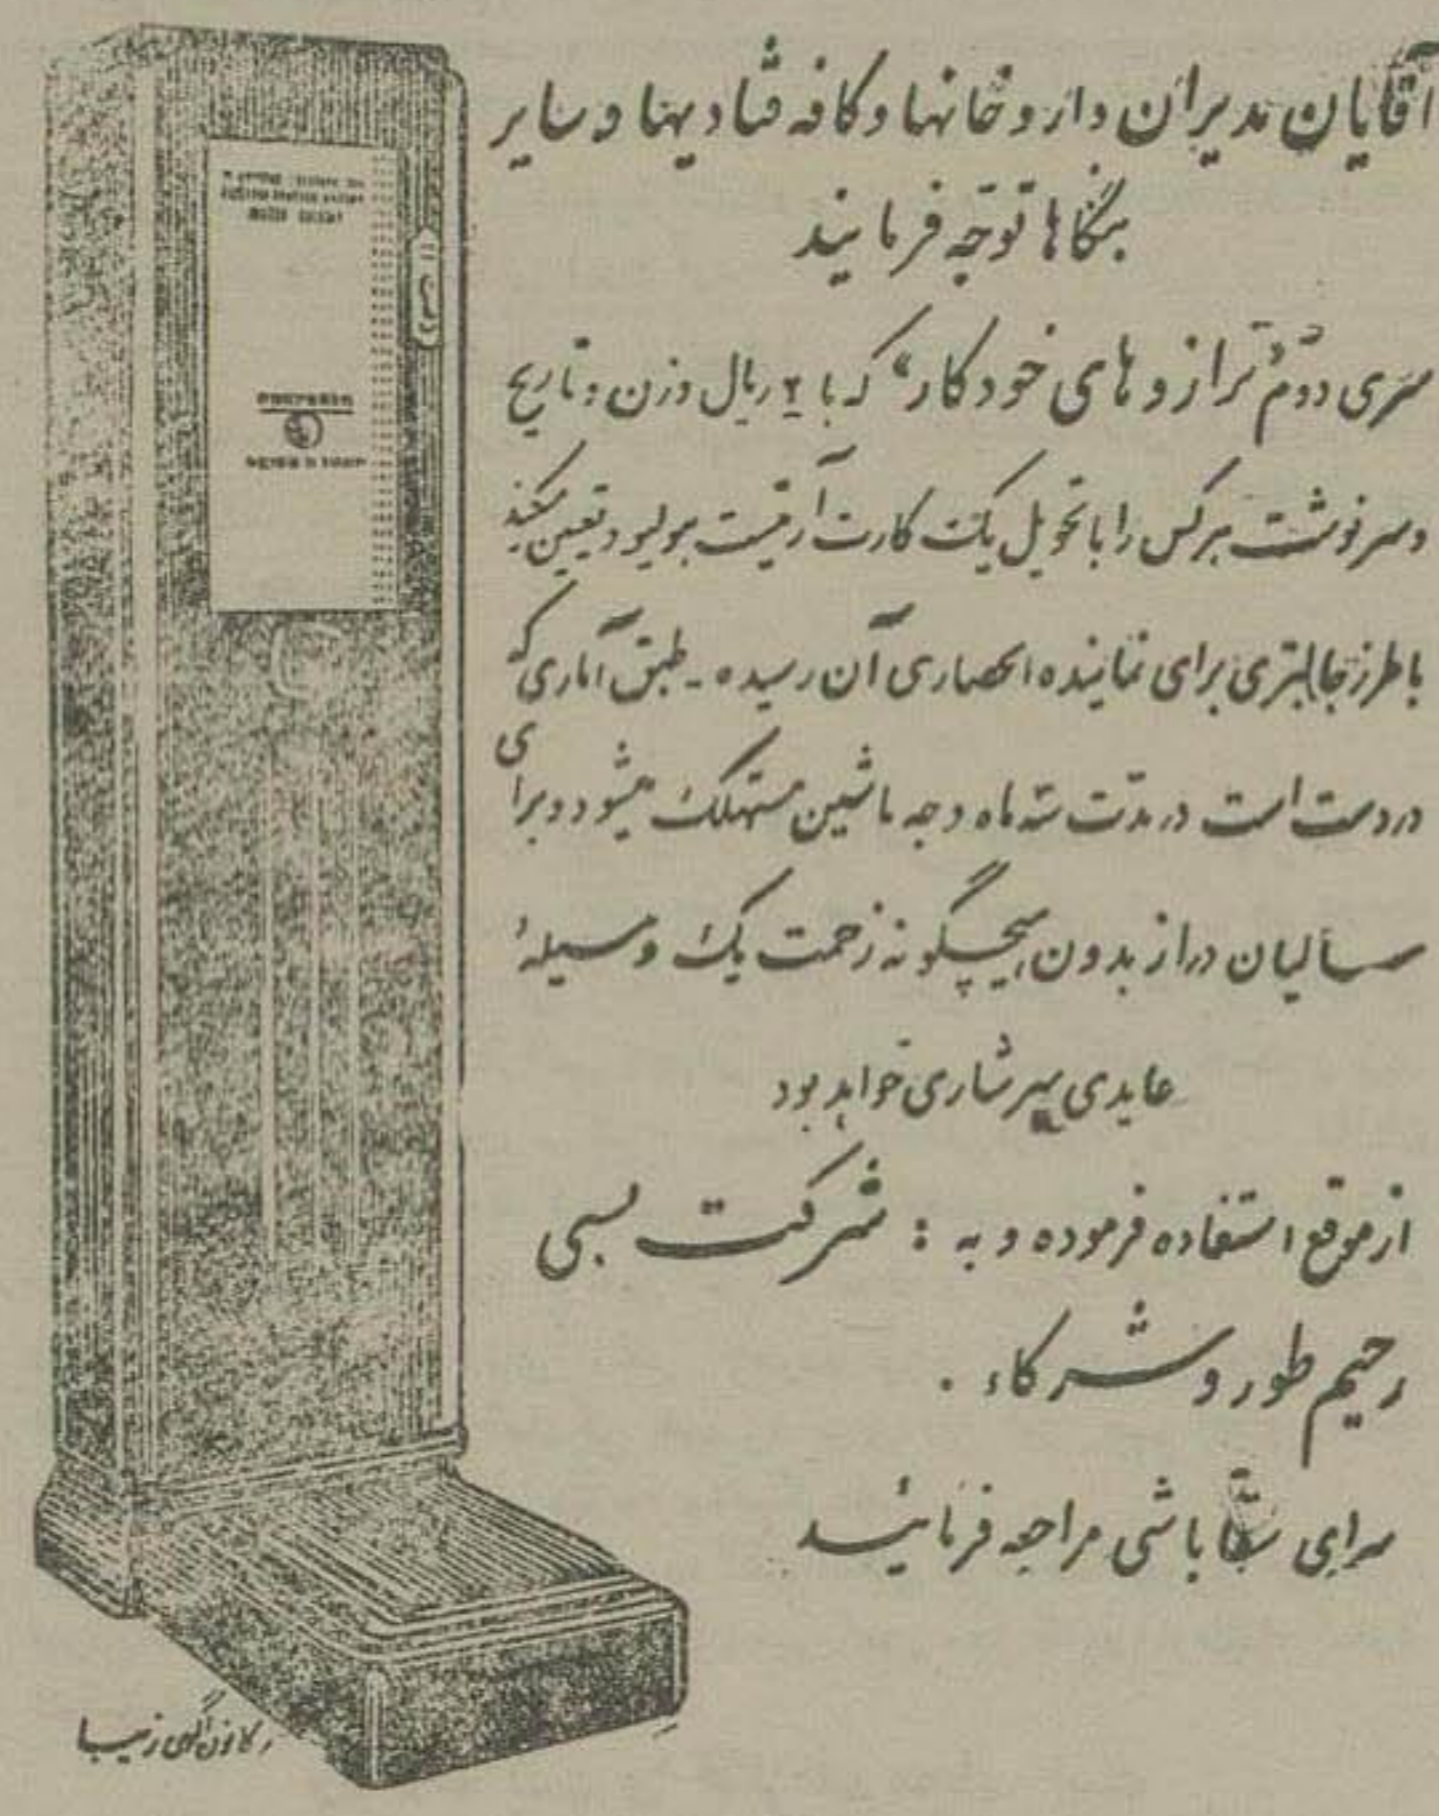 آقایان مدیران داروخانها و کافه قنادیها و سایر
بنگاها توجّه فرمایند
سری دوّم ترازوهای خودکار" که با ۲ ریال وزن و تاریخ
و سرنوشت هرکس را با تحویل یک کارت آرتیست هولیود تعیین میکند
با طرز جالبتری برای نماینده انحصاری آن رسیده ـ طبق آماری که
در دست است در مدّت سه ماه وجه ماشین مستهلک میشود و برای
سالیان دراز بدون هیچگونه زحمت یک وسیلهٔ
عایدی سرشاری خواهد بود
از موقع استفاده فرموده و به : شرکت نسبی
رحیم طور و شرکاء .
سرای سقا باشی مراجعه فرمائید
کانون آگهی زیبا